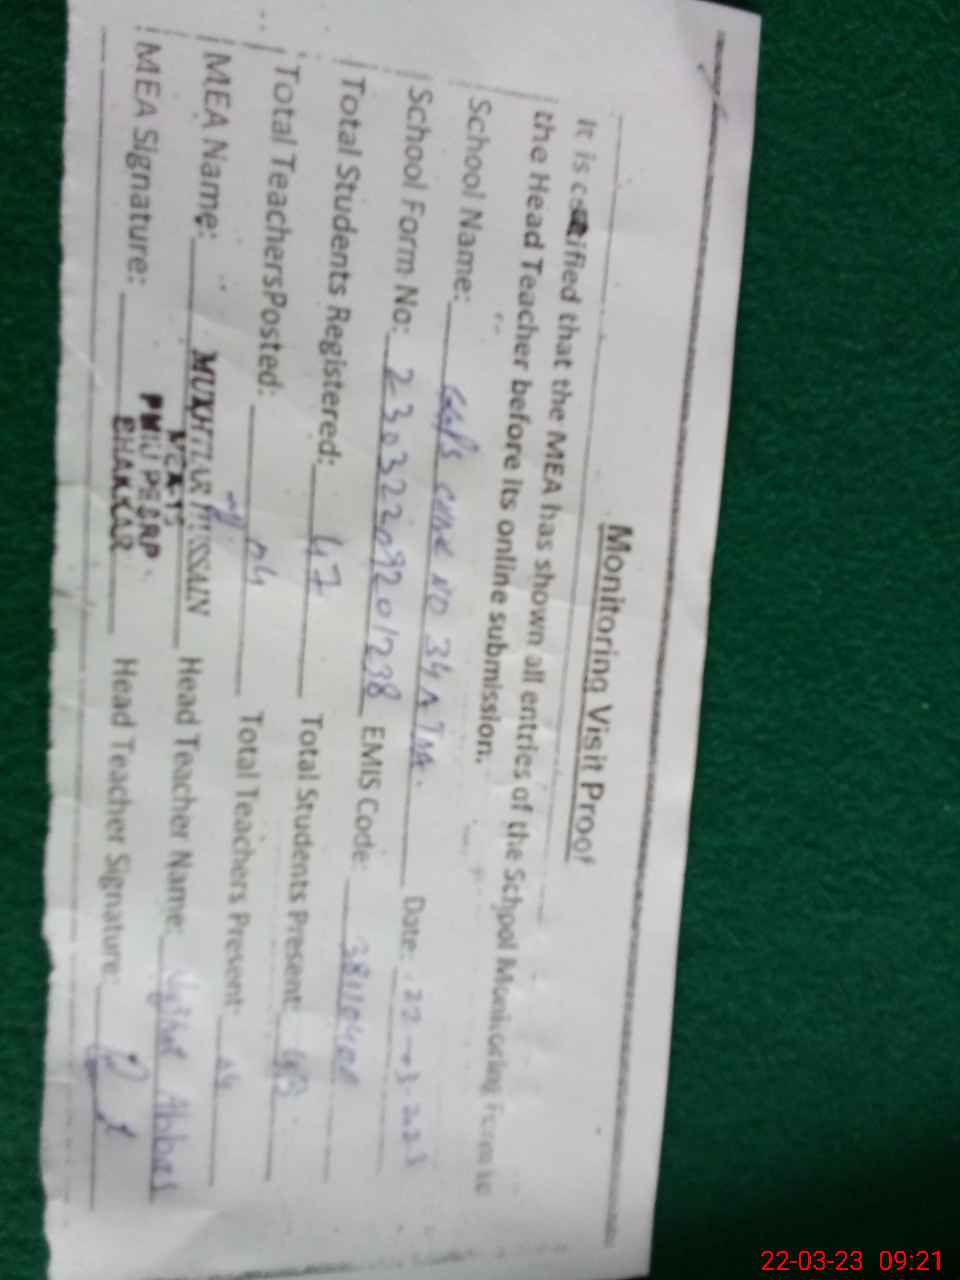 Monitoring Visit Proof
It is certified that the MEA has shown all entries of the School Monitoring Form to
the Head Teacher before its online submission.
School Name: NO 34 Date: 22-03-2023
School Form No: 23032209201238 EMIS Code:
Total Students Registered: 47 Total Students Present:
Total TeachersPosted: 04 Total Teachers Present: 04
MEA Name: MUKHTIAR HUSSAIN Head Teacher Name: Abbas
MEA Signature: Head Teacher Signature:
PMIU PESRP
BHAKKAR
22-03-23 09:21